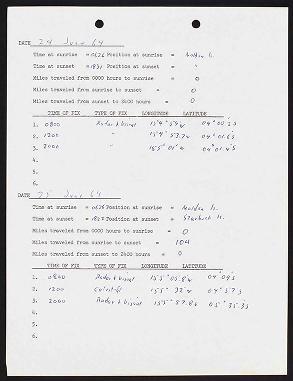 DATE 24 June 64
Time at sunrise = 0626 Position at sunrise = Malden I.
Time at sunset = 1831 Position at sunset = "
Miles traveled from 0000 hours to sunrise = 0
Miles traveled from sunrise to sunset = 0
Miles traveled from sunset to 2400 hours = 0
TIME OF FIX TYPE OF FIX LONGITUDE LATITUDE
1. 0800 Radar & visual 154°
2. 1200 " 154°
3. 2000 " 155° 01'
4.
5.
6.
DATE 25 June 64
Time at sunrise = Position at sunrise = Malden Is.
Time at sunset = Position at sunset = Starbuck Is.
Miles traveled from 0000 hours to sunrise = 0
Miles traveled from sunrise to sunset = 104
Miles traveled from sunset to 2400 hours = 0
TIME OF FIX TYPE OF FIX LONGITUDE LATITUDE
1. 0800 Radar & visual 155° 04° 09 S
2. 1200 Celestial 155° 04° 57 S
3. 2000 Radar & visual 155° 05° 35
4.
5.
6.